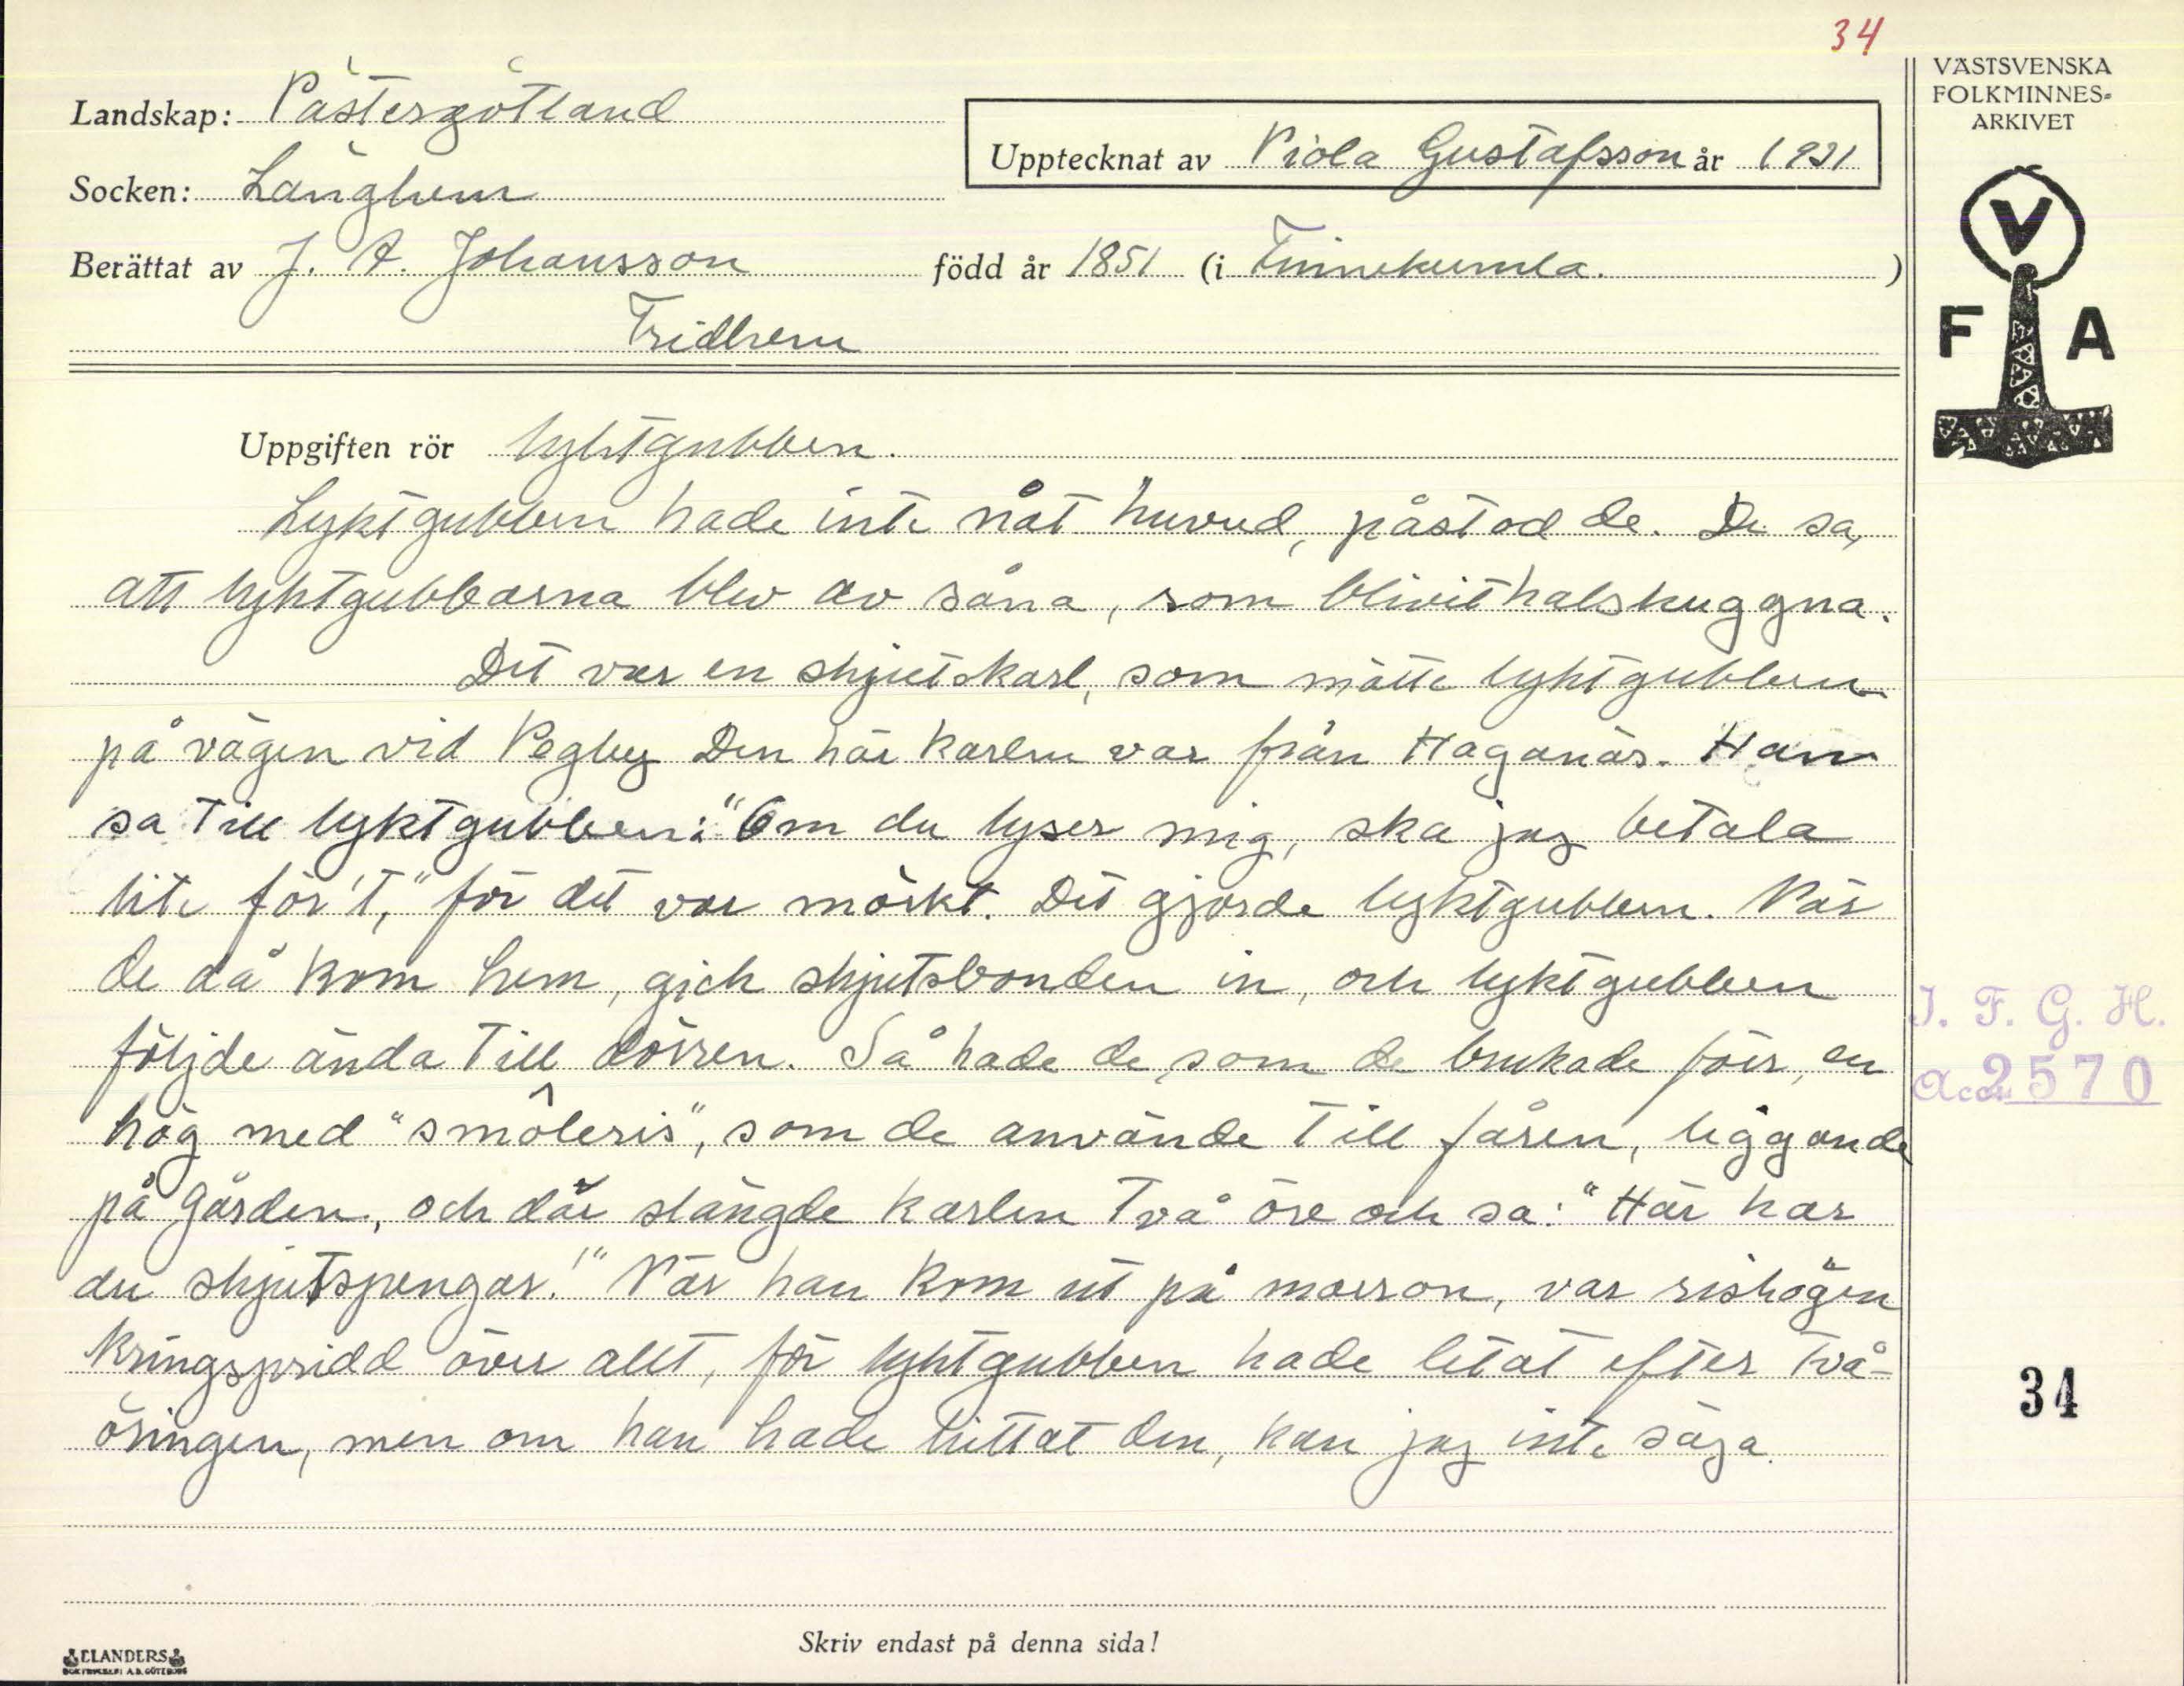 34
VÄSTSVENSKA
FOLKMINNES=
ARKIVET
Landskap: Västergötland
Upptecknat av Viola Gustafsson år 1931
Socken: Länghem
Berättat av J. A. Johansson född år 1851 (i Finnekumla.)
Fridhem
V
F A
Uppgiften rör lyktgubben.
Lyktgubben hade inte nåt huvud, påstod de. De sa,
att lyktgubbarna blev av såna, som blivit halshuggna.
Det var en skjutskarl, som mötte lyktgubben
på vägen vid Vegby. Den här karlen var från Haganäs. Han
sa till lyktgubben: "Om du lyser mig, ska jag betala
lite för't," för det var mörkt. Det gjorde lyktgubben. När
de då kom hem, gick skjutsbonden in, och lyktgubben
följde ända till dörren. Så hade de, som de brukade förr, en
hög med "smôleris", som de använde till fåren, liggande
på gården, och där slängde karlen två öre och sa: "Här har
du skjutspengar!" När han kom ut på morron, var rishögen
kringspridd över allt, för lyktgubben hade letat efter två-
öringen, men om han hade hittat den, kan jag inte säga.
I. F. G. H.
Acc. 2570
34
Skriv endast på denna sida!
ELANDERS
BOKTRYCKERI A.B. GÖTEBORG